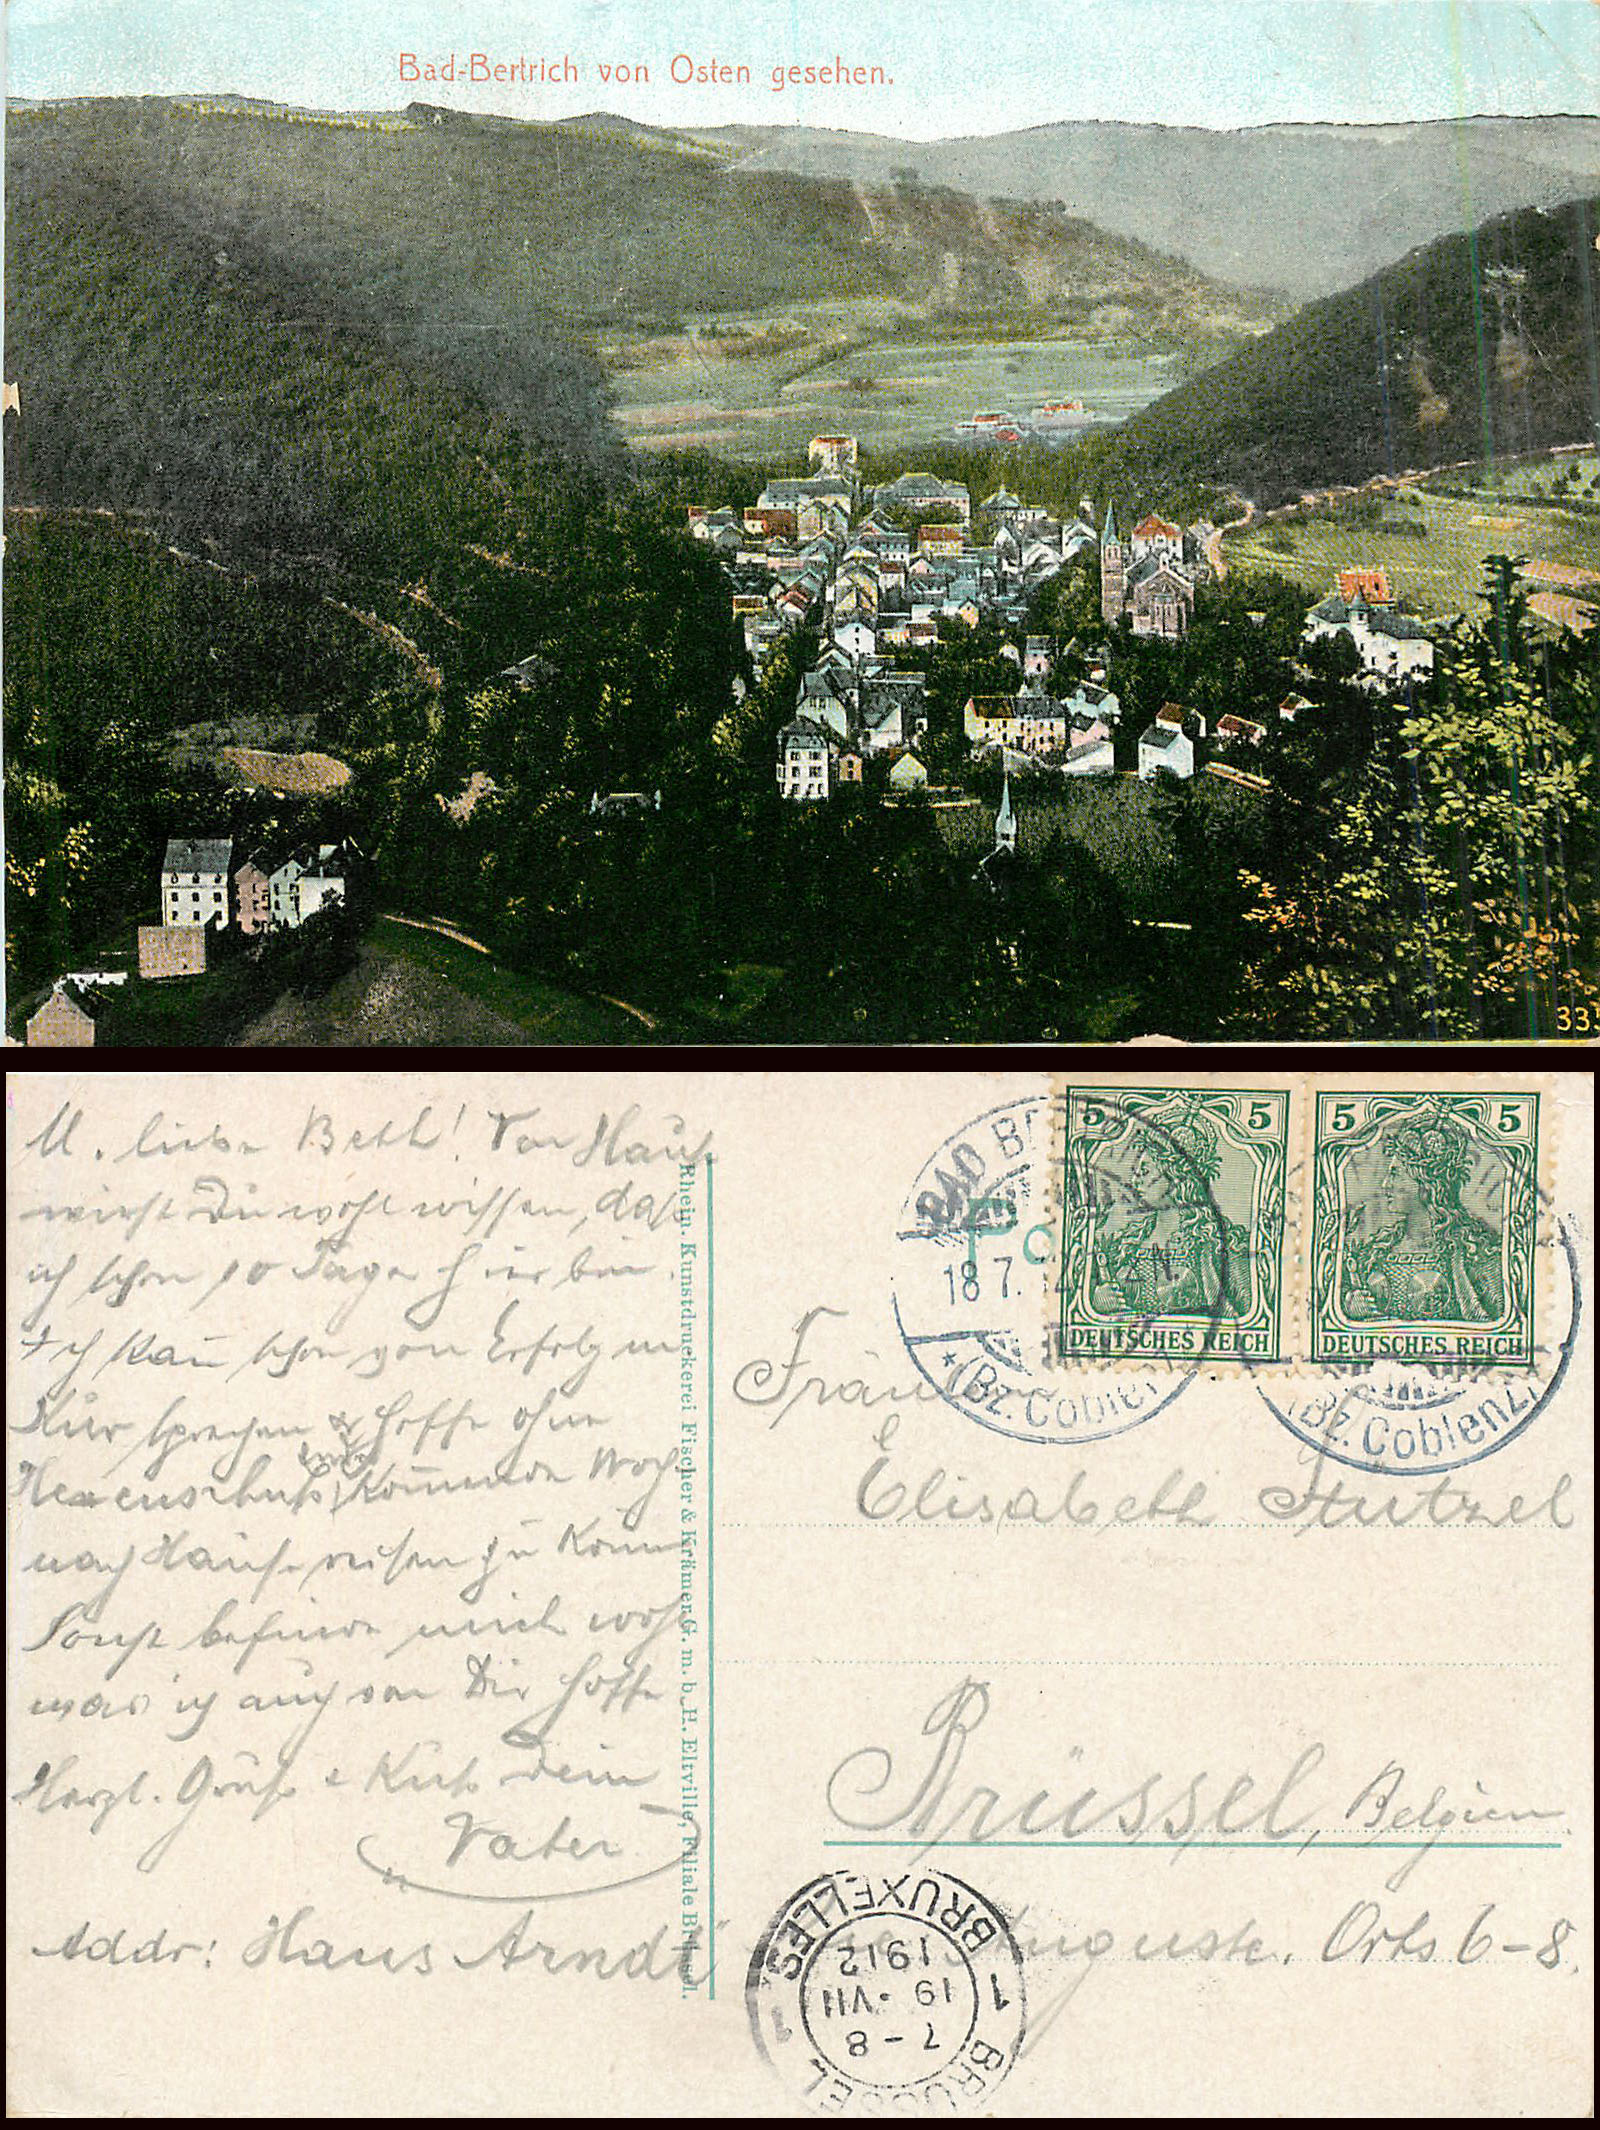 Bad-Bertrich von Osten gesehen.
335
M. liebe Beth! Von Haus
wirst Du wohl wissen, daß
ich schon 10 Tage hier bin.
Ich kann schon von Erfolg
Kur sprechen & hoffe ohne
Hexenschuß Ende kommender Woche
nach Hause reisen zu können
Sonst befinde mich wohl
was ich auch von Dir hoffe
Herzl. Gruß & Kuß Dein
Vater
Addr: Haus Arndt
Rhein. Kunstdruckerei Fischer & Krämer G. m. b. H. Eltville, Filiale Brüssel.
5 5
DEUTSCHES REICH
5 5
DEUTSCHES REICH
BAD BERTRICH
18.7.12
* (Bz. Coblenz)
(Bz. Coblenz)
Fräulein
Elisabeth Stutzel
Brüssel, Belgien
Auguste Orts 6-8.
1 BRUXELLES 1
BRUSSEL
7-8
19 VII
1912